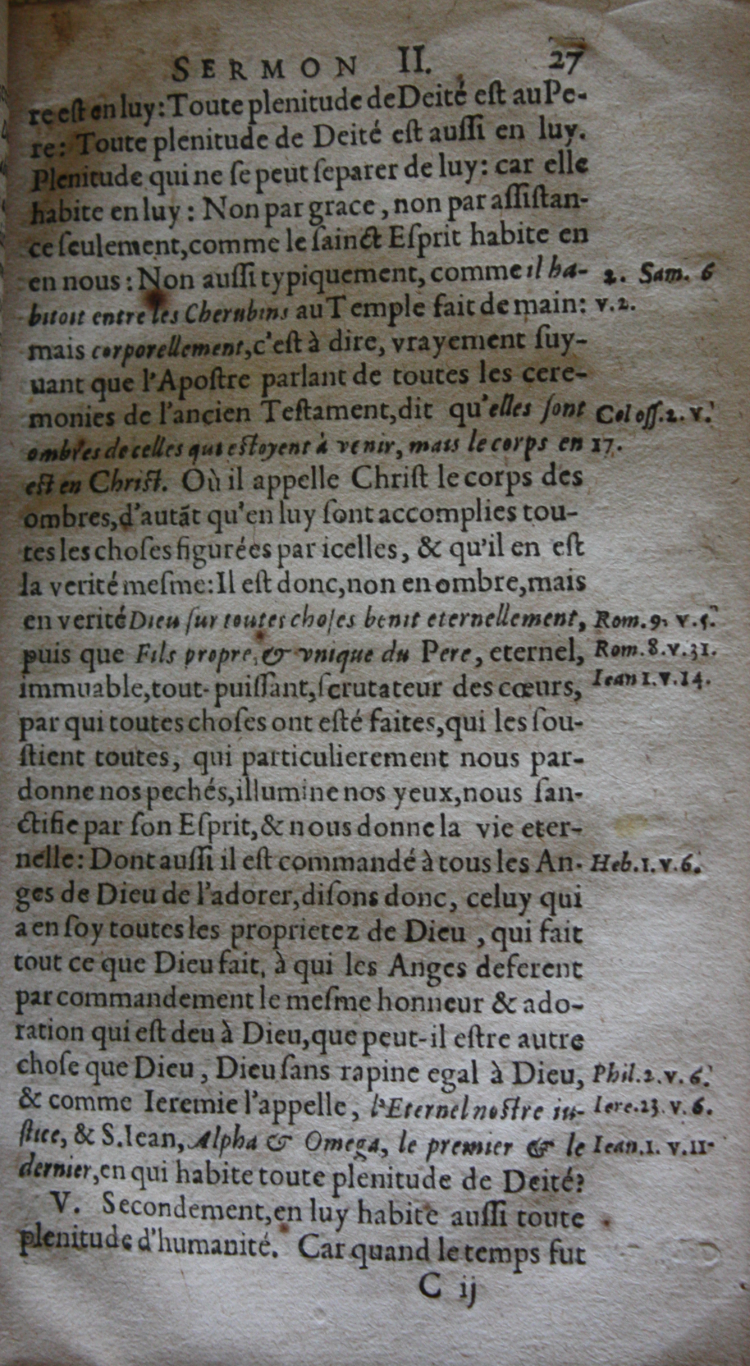 SERMON II. 27
re est en luy: Toute plenitude de Deité est au Pe-
re: Toute plenitude de Deité est aussi en luy.
Plenitude qui ne se peut separer de luy: car elle
habite en luy: Non par grace, non par assistan-
ce seulement, comme le sainct Esprit habite en
en nous: Non aussi typiquement, comme il ha- 2. Sam. 6
bitoit entre les Cherubins au Temple fait de main: v.2.
mais corporellement, c'est à dire, vrayement suy-
uant que l'Apostre parlant de toutes les cere-
monies de l'ancien Testament, dit qu'elles sont Coloss.2.v.
ombres de celles qui estoyent à venir, mais le corps en 17.
est en Christ. Où il appelle Christ le corps des
ombres, d'autãt qu'en luy sont accomplies tou-
tes les choses figurées par icelles, & qu'il en est
la verité mesme: Il est donc, non en ombre, mais
en verité Dieu sur toutes choses benit eternellement, Rom.9. v.5.
puis que Fils propre, & vnique du Pere, eternel, Rom.8.v.31.
immuable, tout-puissant, scrutateur des cœurs, Iean 1.v.14.
par qui toutes choses ont esté faites, qui les sou-
stient toutes, qui particulierement nous par-
donne nos pechés, illumine nos yeux, nous san-
ctifie par son Esprit, & nous donne la vie eter-
nelle: Dont aussi il est commandé à tous les An- Heb.1.v.6.
ges de Dieu de l'adorer, disons donc, celuy qui
a en soy toutes les proprietez de Dieu, qui fait
tout ce que Dieu fait, à qui les Anges deferent
par commandement le mesme honneur & ado-
ration qui est deu à Dieu, que peut-il estre autre
chose que Dieu, Dieu sans rapine egal à Dieu, Phil.2.v.6.
& comme Ieremie l'appelle, l'Eternel nostre iu- Iere.23.v.6.
stice, & S. Iean, Alpha & Omega, le premier & le Iean.1. v.11.
dernier, en qui habite toute plenitude de Deité?
V. Secondement, en luy habite aussi toute
plenitude d'humanité. Car quand le temps fut
C ij